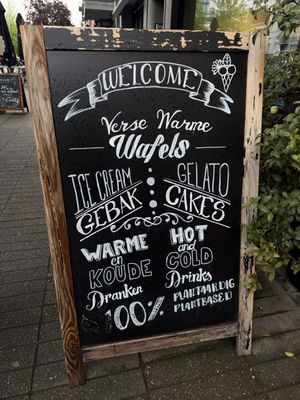 WELCOME
Verse Warme
Wafels
ICE CREAM
GEBAK
GELATO
CAKES
WARME
en
KOUDE
Dranken
100%
HOT
and
COLD
Drinks
PLANTAARDIG
PLANTBASED